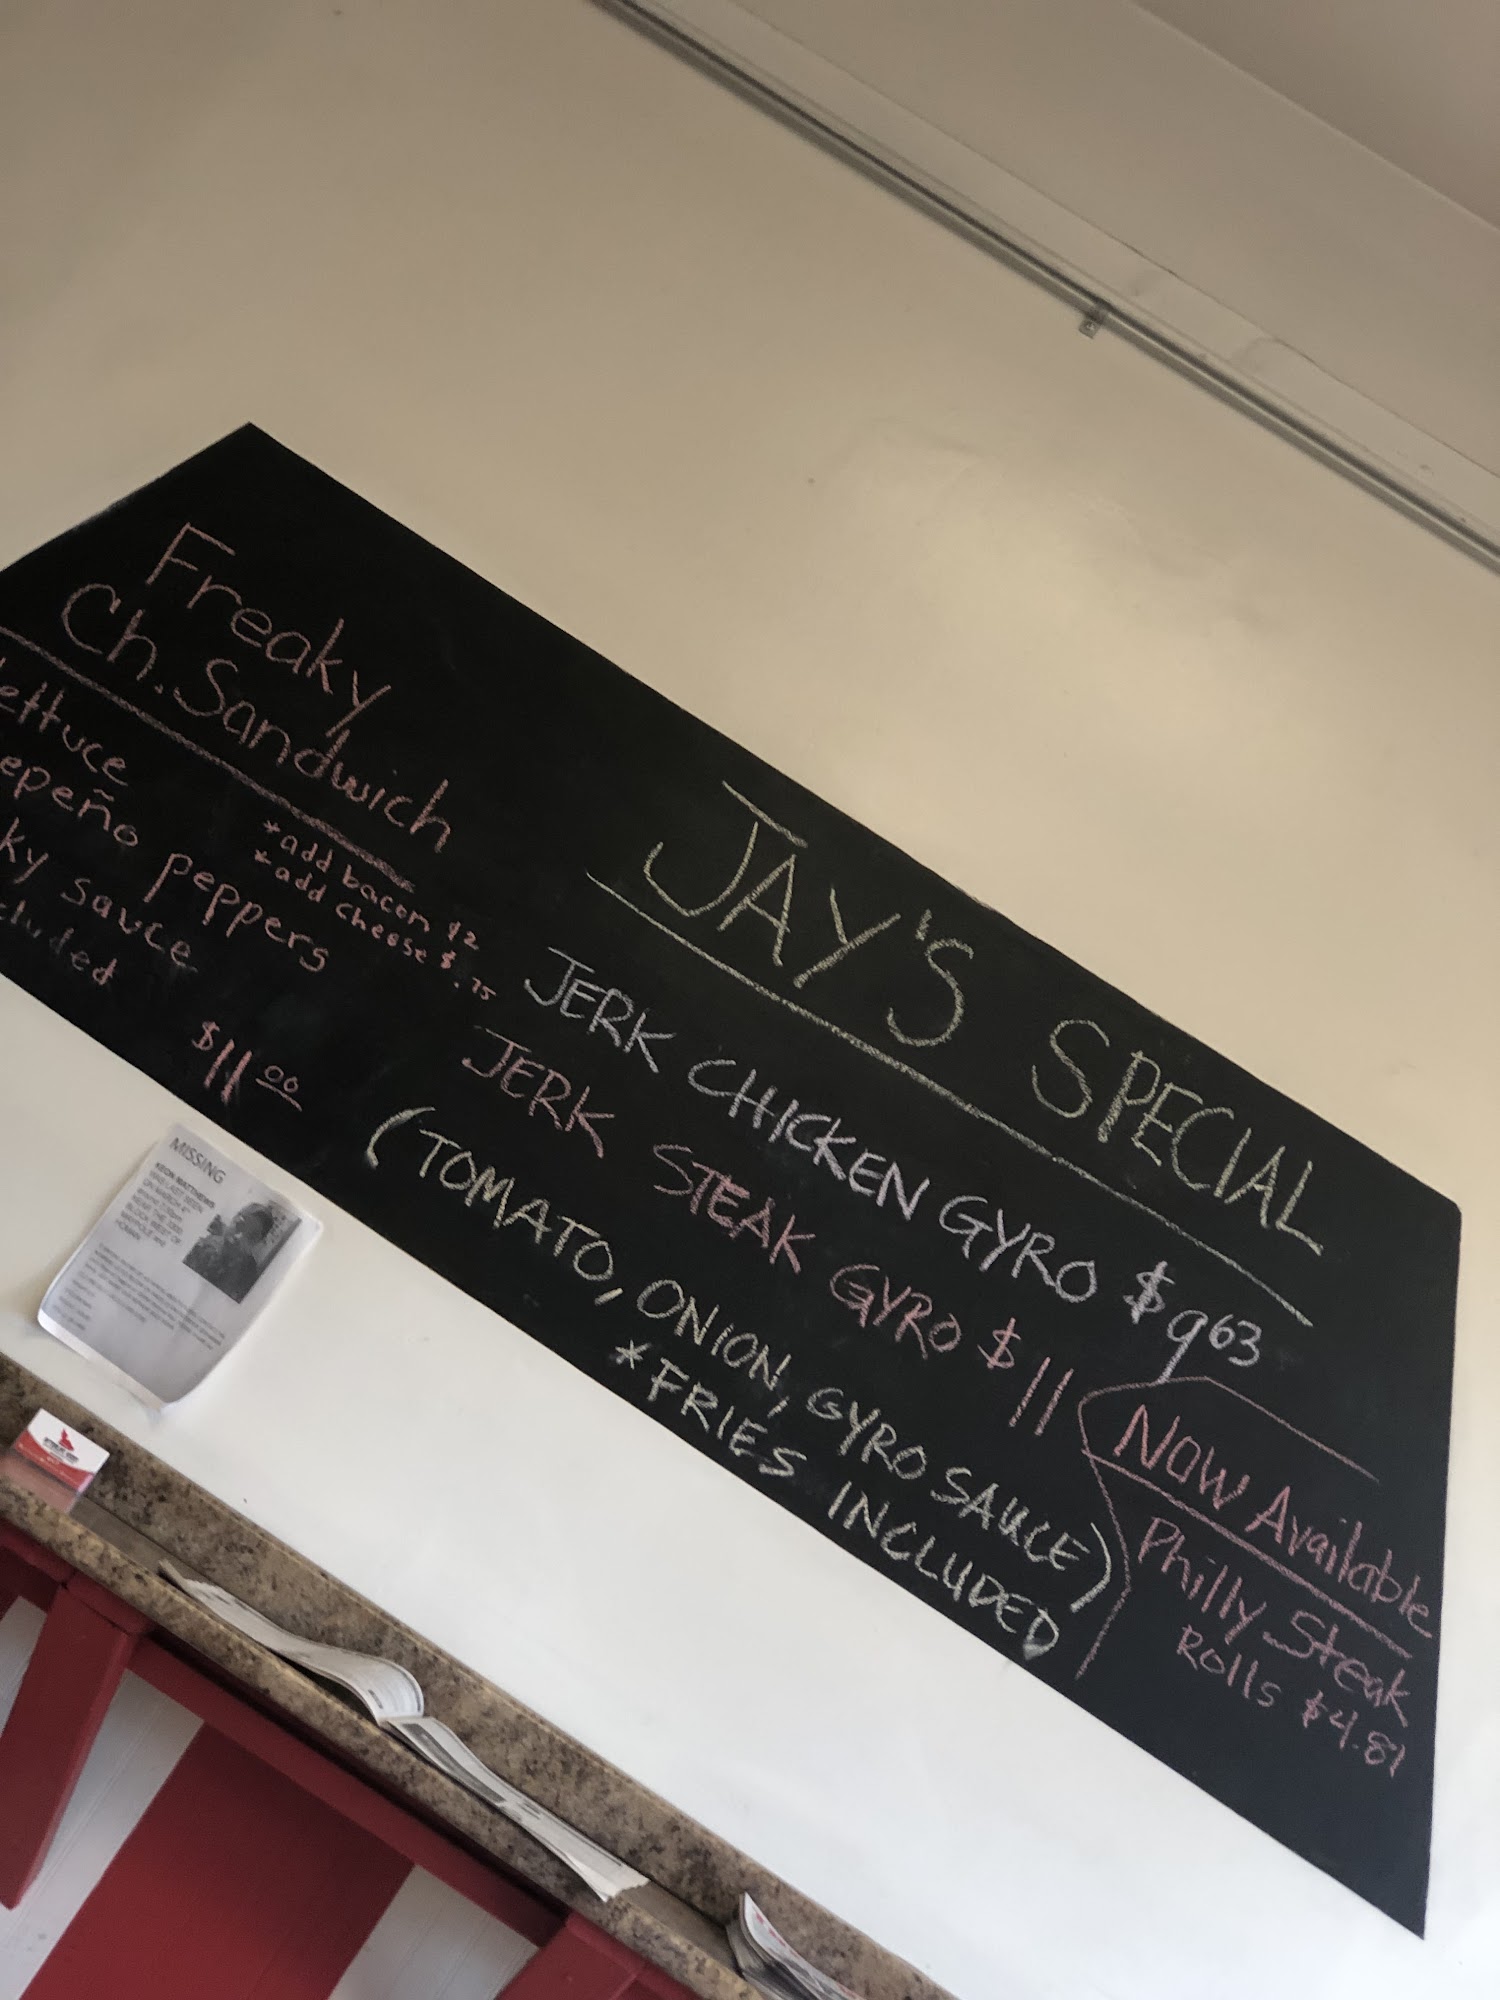 Freaky
Ch. Sandwich
ettuce
epeño peppers
ky sauce
cluded
*add bacon $2
*add cheese $.75
$11.00
JAY'S SPECIAL
JERK CHICKEN GYRO $9.63
JERK STEAK GYRO $11
(TOMATO, ONION, GYRO SAUCE)
*FRIES INCLUDED
Now Available
Philly Steak
Rolls $4.81
MISSING
KEON MATTHEWS
WAS LAST SEEN